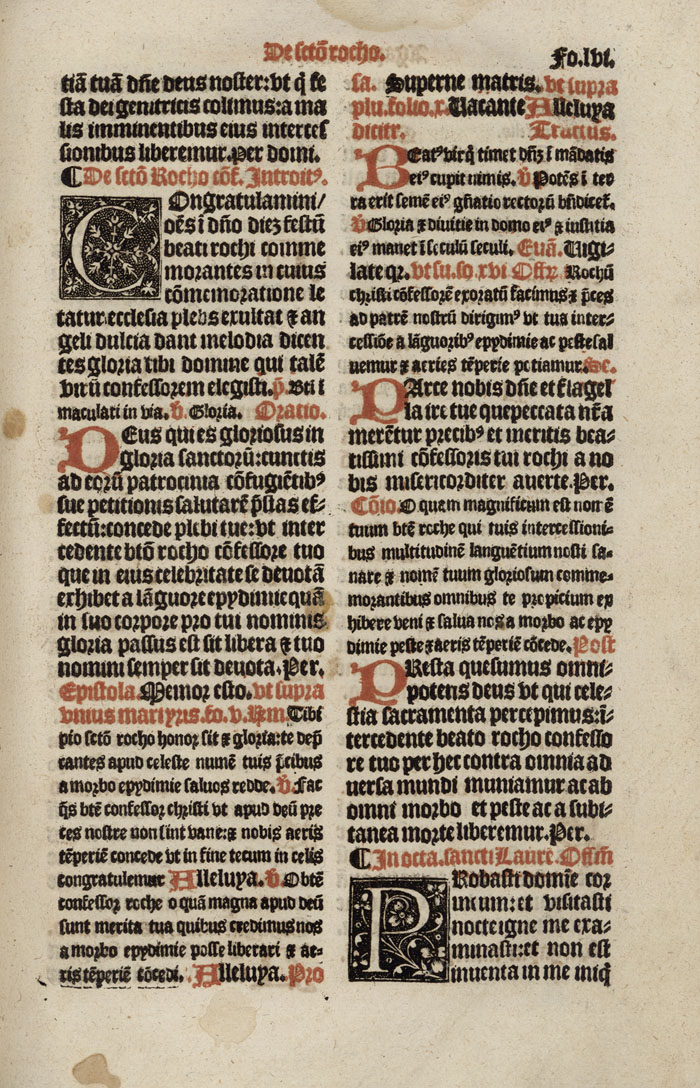 De sctõ rocho.
Fo.lvi.
tiã tuã dñe deus noster: vt q̃ fe
sta dei genitricis colimus: a ma
lis imminentibus eius interces
sionibus liberemur. Per domi.
¶ De sctõ Rocho cõf. Introitꝰ.
COngratulamini/
oẽs ĩ dño diez festũ
beati rochi comme
morantes in cuius
cõmemoratione le
tatur ecclesia plebs exultat ⁊ an
geli dulcia dant melodia dicen
tes gloria tibi domine qui talẽ
virũ confessorem elegisti. p̃. Bti ĩ
maculati in via. v̓. Gloria. Oratio.
DEus qui es gloriosus in
gloria sanctorũ: cunctis
ad eorũ patrocinia cõfugiẽtibꝰ
sue petitionis salutarẽ p̃stas ef⸗
fectũ: concede plebi tue: vt inter
cedente btõ rocho cõfessore tuo
que in eius celebritate se deuotã
exhibet a lãguore epydimie quã
in suo corpore pro tui nominis
gloria passus est sit libera ⁊ tuo
nomini semper sit deuota. Per.
Epistola. Memor esto. vt supra
vnius martyris. fo. v. Rm̃. Tibi
pio sctõ rocho honor sit ⁊ gloria: te dep̃
cantes apud celeste numẽ tuis p̃cibus
a morbo epydimie saluos redde. v̓. Fac
q̃s btẽ confessor christi vt apud deũ pre
ces nostre non sint vane: ⁊ nobis aeris
tẽperiẽ concede vt in fine tecum in celis
congratulemur Alleluya. v̓. O btẽ
confessor roche o quã magna apud deũ
sunt merita tua quibus credimus nos
a morbo epydimie posse liberari ⁊ ae⸗
ris tẽperiẽ cõcedi. Alleluya. Pro
sa. Superne matris. vt supra
plu. folio. x. Uacante Alleluya
dicitr̃. Tractus.
BEatꝰ vir q̃ timet dñz ĩ mãdatis
eiꝰ cupit nimis. v̓. Potẽs ĩ ter
ra erit semẽ eiꝰ gñatio rectorũ bñdicet̃.
v̓. Gloria ⁊ diuitie in domo eiꝰ ⁊ iustitia
eiꝰ manet ĩ seculũ seculi. Euã. Uigi⸗
late qr. vt su. fo. xvi Offr̃ Rochũ
christi cõfessorẽ exoratũ facimus ⁊ p̃ces
ad patrẽ nostrũ dirigimꝰ vt tua inter⸗
cessiõe a lãguoribꝰ epydimie ac peste sal
uemur ⁊ aeries tẽperie potiamur. Se.
PArce nobis dñe et flagel
la ire tue que peccata nr̃a
merẽtur precibꝰ et meritis bea⸗
tissimi cõfessoris tui rochi a no
bis misericorditer auerte. Per.
Cõio. O quem magnificum est nomẽ
tuum btẽ roche qui tuis intercessioni⸗
bus multitudinẽ languẽtium nosti sa⸗
nare ⁊ nomẽ tuum gloriosum comme⸗
morantibus omnibus te propicium ex
hibere veni ⁊ salua nos a morbo ac epy
dimie peste ⁊ aeris tẽperiẽ cõcede. Post
PResta quesumus omni⸗
potens deus vt qui cele⸗
stia sacramenta percepimus: ĩ⸗
tercedente beato rocho confesso
re tuo per hec contra omnia ad
uersa mundi muniamur ac ab
omni morbo et peste ac a subi⸗
tanea morte liberemur. Per.
¶ In octa. sancti Laurẽ. Offm̃
PRobasti domine cor
meum: et visitasti
nocte igne me exa⸗
minasti: et non est
inuenta in me iniq̃